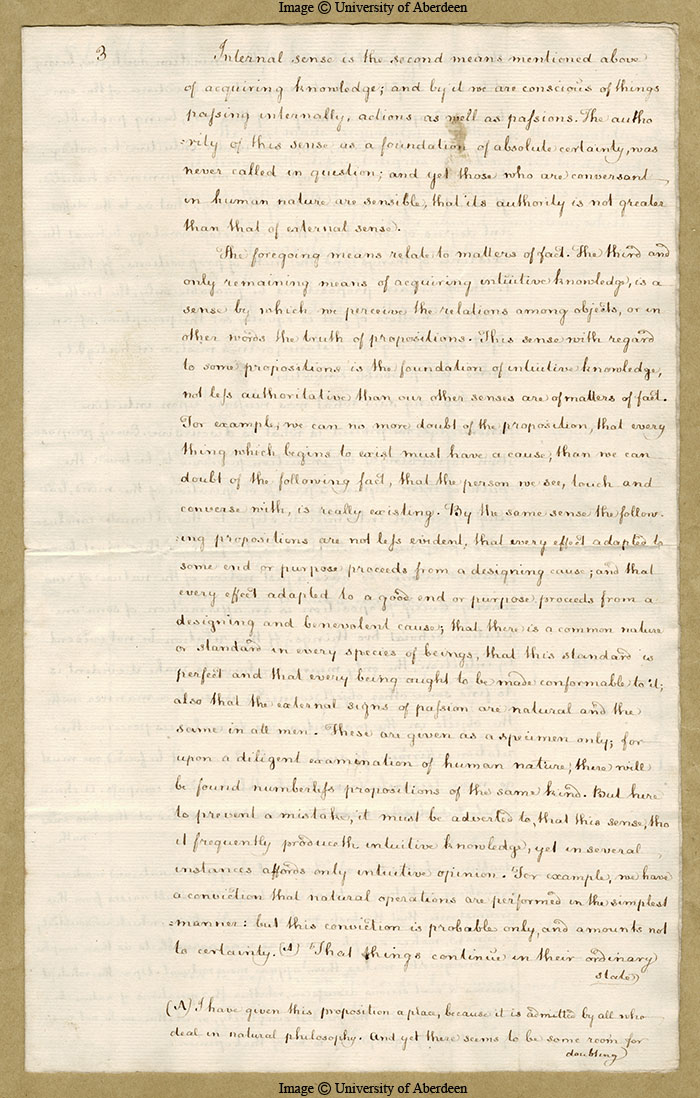 Image © University of Aberdeen
3
Internal sense is the second means mentioned above
of acquiring knowledge; and by it we are conscious of things
passing internally, actions as well as passions. The autho
=rity of this sense as a foundation of absolute certainty, was
never called in question; and yet those who are conversant
in human nature are sensible, that its authority is not greater
than that of external sense.
The foregoing means relate to matters of fact. The third and
only remaining means of acquiring intuitive knowledge, is a
sense by which we perceive the relations among objects, or in
other words the truth of propositions. This sense with regard
to some propositions is the foundation of intuitive knowledge,
not less authoritative than our other senses are of matters of fact.
For example, we can no more doubt of the proposition, that every
thing which begins to exist must have a cause; than we can
doubt of the following fact, that the person we see, touch and
converse with, is really existing. By the same sense the follow-
=ing propositions are not less evident, that every effect adapted to
some end or purpose proceeds from a designing cause; and that
every effect adapted to a good end or purpose proceeds from a
designing and benevolent cause; that there is a common nature
or standard in every species of beings, that this standard is
perfect and that every being ought to be made conformable to it;
also that the external signs of passion are natural and the
same in all men. These are given as a specimen only; for
upon a diligent examination of human nature, there will
be found numberless propositions of the same kind. But here
to prevent a mistake, it must be adverted to, that this sense, tho
it frequently produceth intuitive knowledge, yet in several
instances affords only intuitive opinion. For example, we have
a conviction that natural operations are performed in the simplest
=manner: but this conviction is probable only, and amounts not
to certainty. (A) That things continue in their ordinary
state
(A) I have given this proposition a place, because it is admitted by all who
deal in natural philosophy. And yet there seems to be some room for
doubting
Image © University of Aberdeen